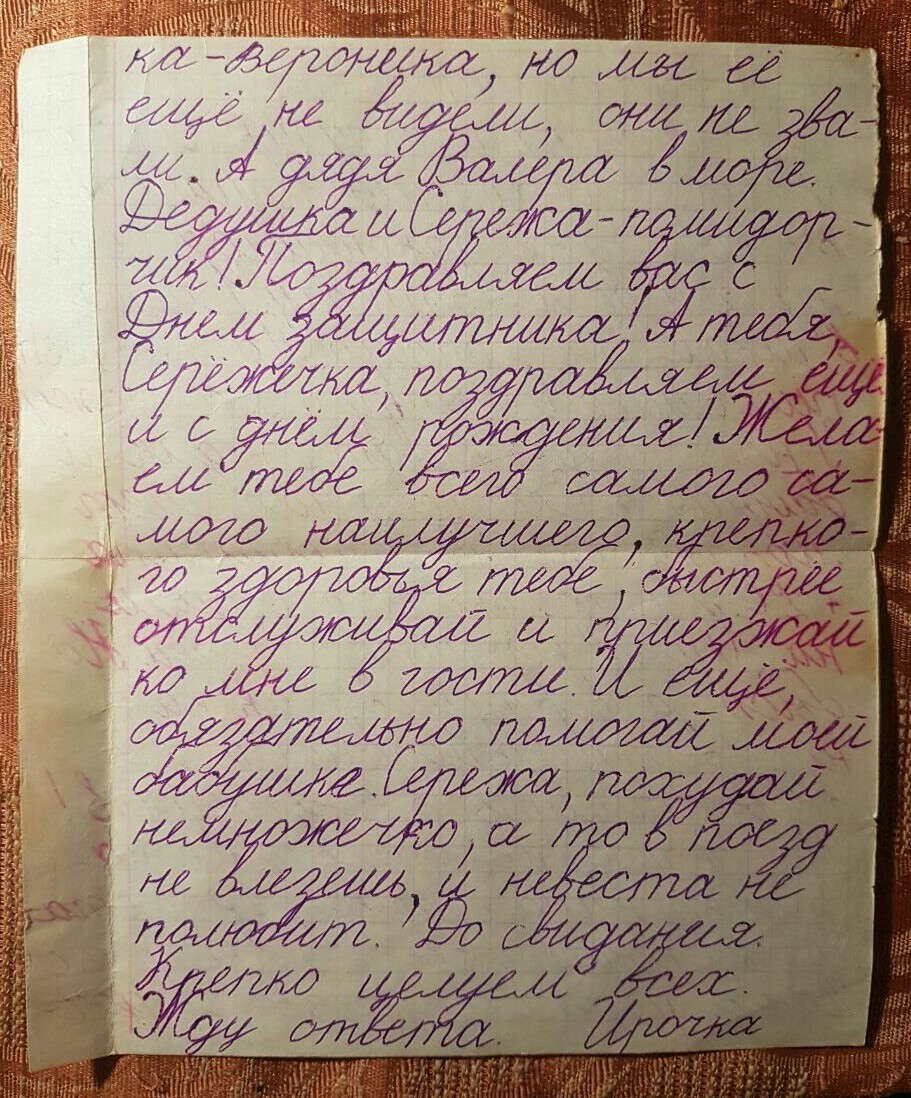 ка-Вероника, но мы её
ещё не видели, они не зва-
ли. А дядя Валера в море.
Дедушка и Сережа-помидор-
чик! Поздравляем вас с
Днем защитника! А тебя,
Серёжечка, поздравляем ещё
и с днём рождения! Жела-
ем тебе всего самого са-
мого наилучшего, крепко-
го здоровья тебе, быстрее
отслуживай и приезжай
ко мне в гости. И ещё,
обязательно помогай моей
бабушке. Сережа, похудай
немножечко, а то в поезд
не влезешь, и невеста не
полюбит. До свидания.
Крепко целуем всех.
Жду ответа. Ирочка